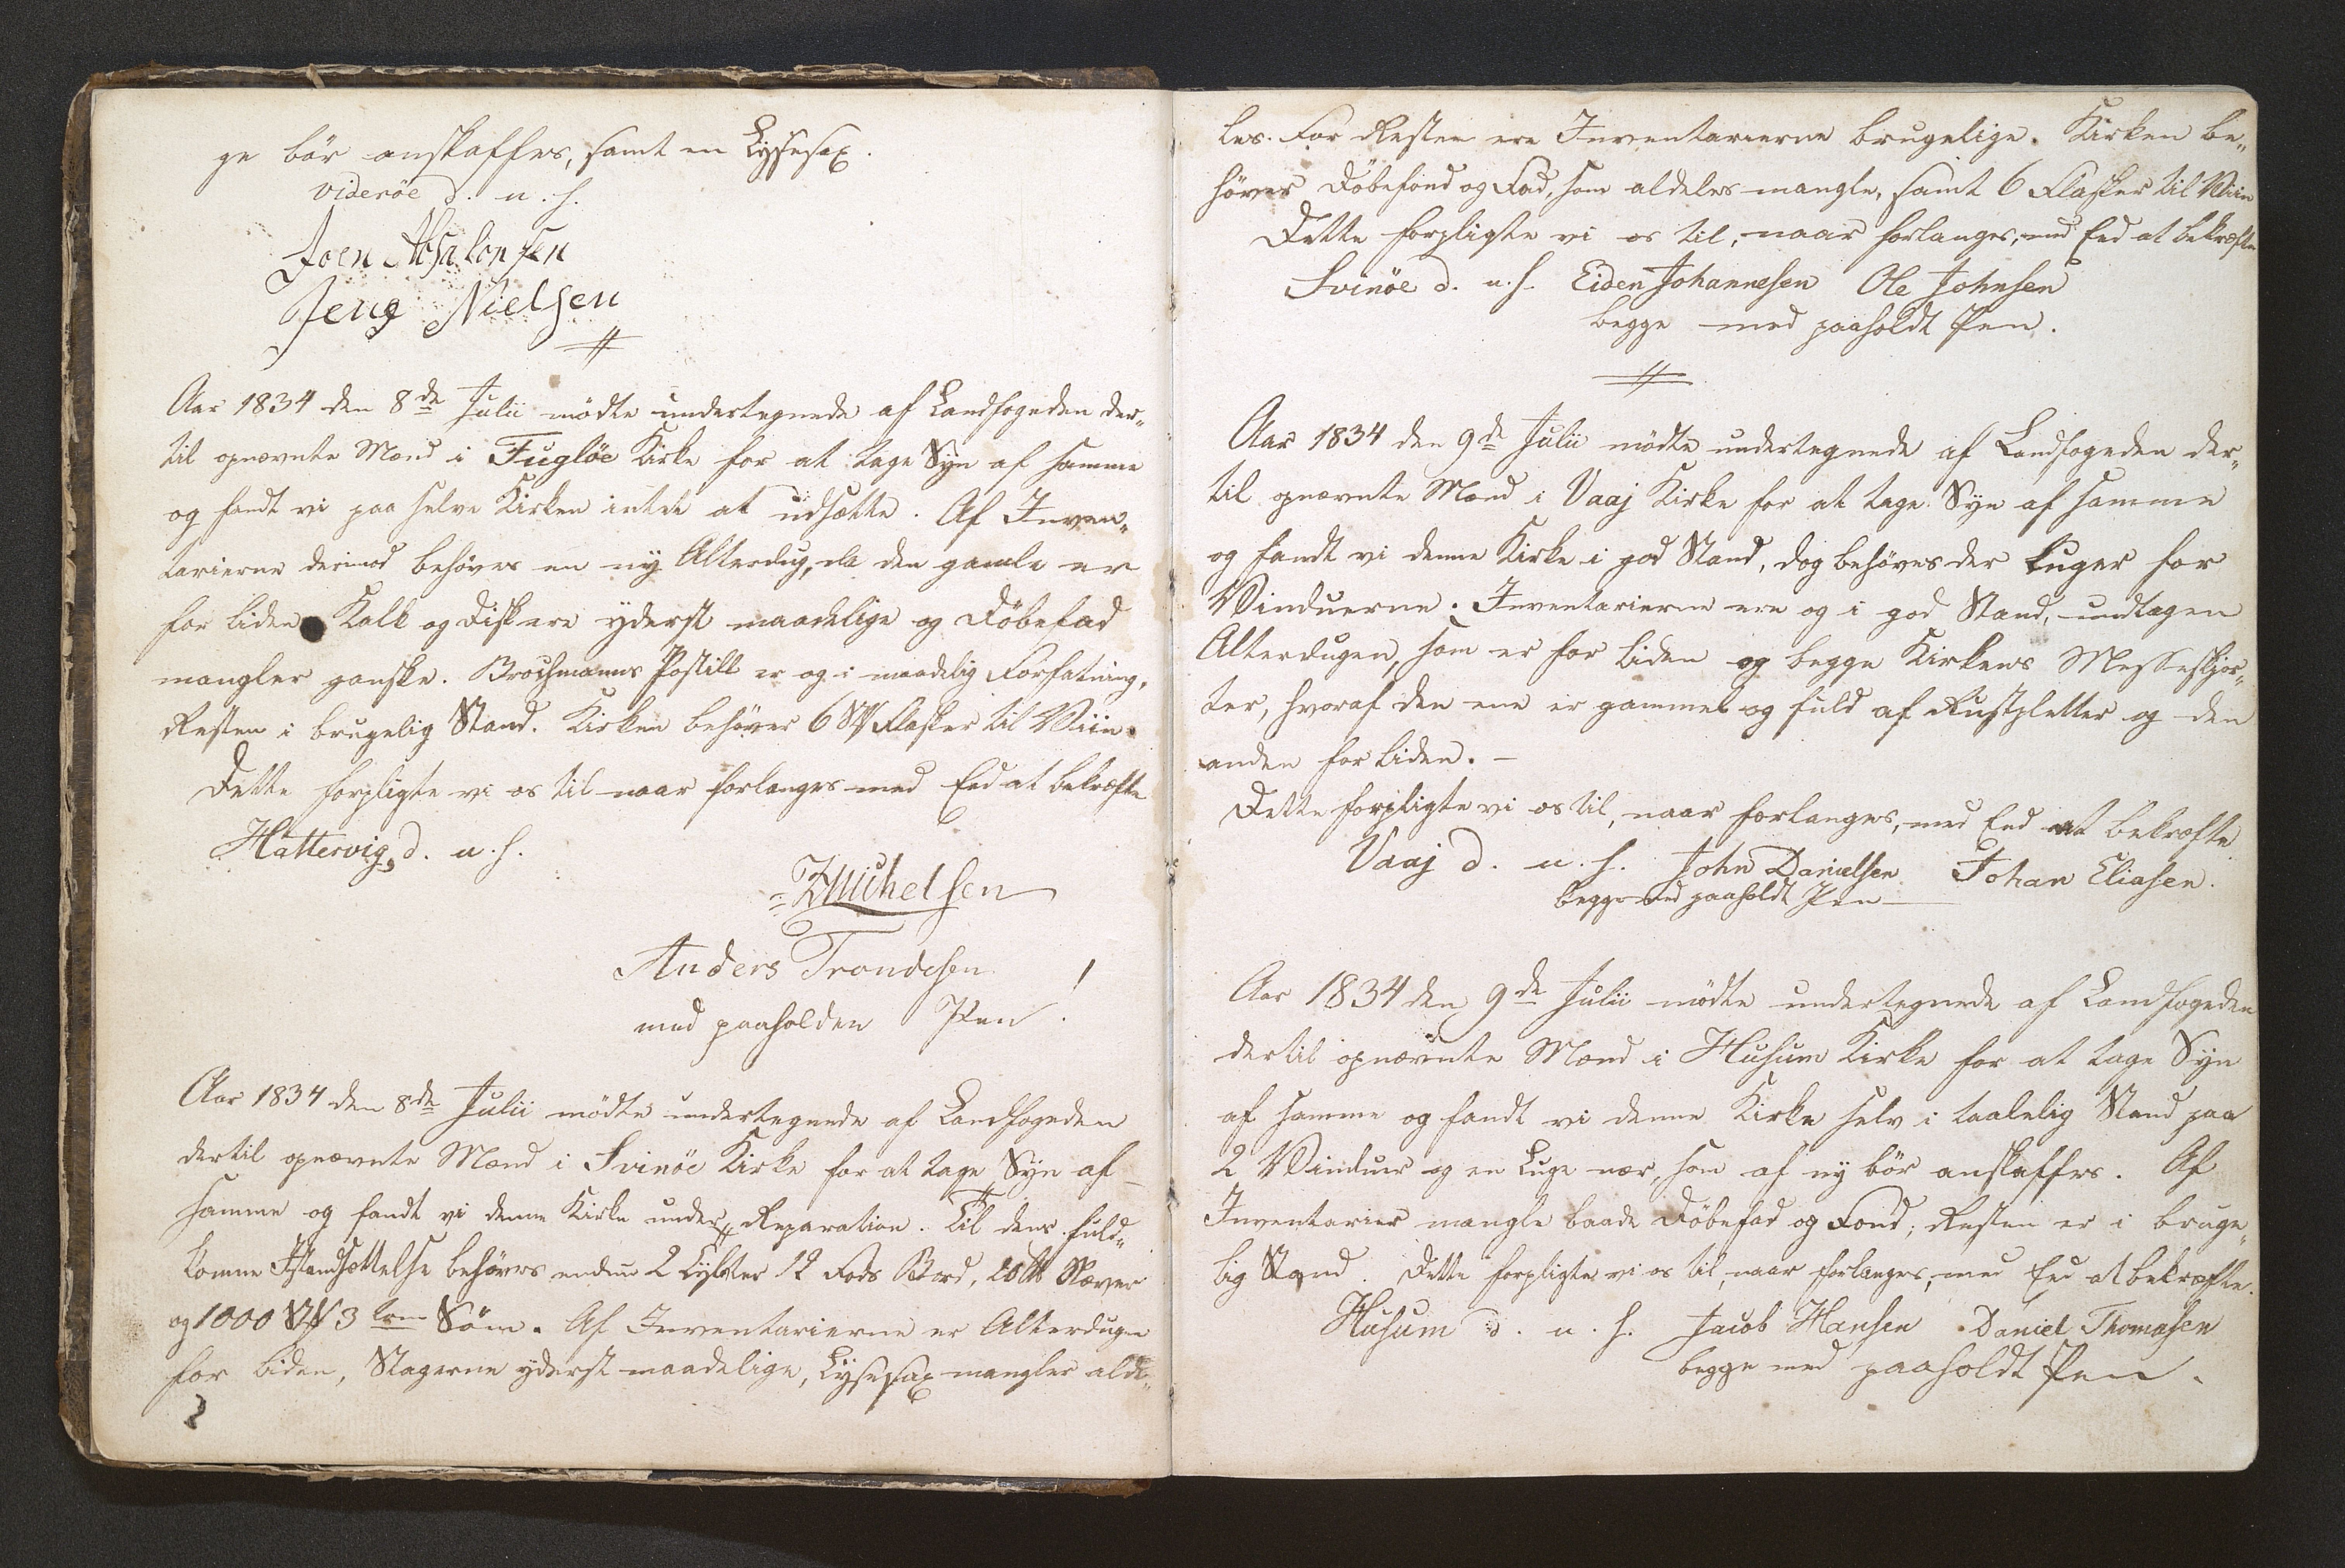 ge bör anskaffes, samt en Lyssesax.
Videröe d. u. s.
Joen Absalonsen
Jens Nielsen
Aar 1834 den 8de Julii mödte undertegnede af Landfogeden der„
til opnævnte Mænd i Fuglöe Kirke for at tage Syn af samme
og fandt vi paa selve Kirken intet at udsætte. Af Inven„
tarierne derimod behöves en ny Alterdug, da den gamle er
for liden Kalk og Disk ere yderst maadelige og Döbefad
mangler ganske. Brochmanns Postill er og i maadelig Forfatning,
Resten i brugelig Stand. Kirken behöver 6 Stk Flasker til Viin.
Dette forpligte vi os til naar forlanges med Eed at bekræfte
Hattervig d. u. s.
Michelsen
Anders Trondesen
med paaholden Pen!
Aar 1834 den 8de Julii mödte undertegnede af Landfogeden
dertil opnævnte Mænd i Svinöe Kirke for at tage Syn af
samme og fandt vi denne Kirke under Reparation. Til dens fuld„
komne Istandsættelse behöves endnu 2 Tylvter 12 Fods Bord, 20 Næver
og 1000 Stk 3 Söm. Af Inventarierne er Alterdugen
for liden, Stagerne yderst maadelige, Lysesax mangler alde„
les. For Resten ere Inventarierne brugelige. Kirken be„
höver Döbefond og Fad, som aldeles mangle, samt 6 Flasker til Viin
Dette forpligte vi os til, naar forlanges, med Eed at bekræfte
Svinöe d. u. s. Eiden Johannesen Ole Johnsen
begge med paaholdt Pen.
Aar 1834 den 9de Julii mödte undertegnede af Landfogeden der„
til opnævnte Mænd i Vaaj Kirke for at tage Syn af samme
og fandt vi denne Kirke i god Stand, dog behöves der Luger for
Vinduerne. Inventarierne ere og i god Stand, undtagen
Alterdugen, som er for liden og begge Kirkens Messeskjor„
ter, hvoraf den ene er gammel og fuld af Rustpletter og den
anden for liden. –
Dette forpligte vi os til, naar forlanges, med Eed at bekræfte
Vaaj d. u. s. John Danielsen Johan Eliasen.
begge med paaholdt Pen
Aar 1834 den 9de Julii mödte undertegnede af Landfogeden
dertil opnævnte Mænd i Husum Kirke for at tage Syn
af samme og fandt vi denne Kirke selv i taalelig Stand paa
2 Vinduer og en Luge nær, som af ny bör anskaffes. Af
Inventarier mangle baade Döbefad og Fond; Resten er i bruge„
lig Stand. Dette forpligte vi os til, naar forlanges, med Eed at bekræfte.
Husum d. u. s. Jacob Hansen Daniel Thomasen
begge med paaholdt Pen.